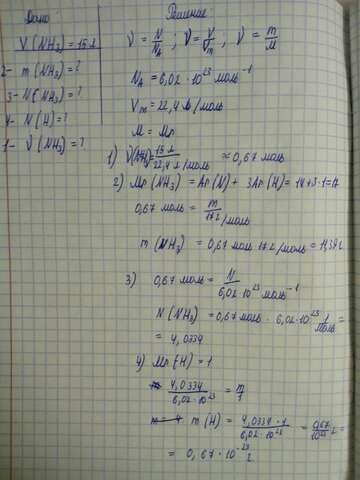 Дано:
V(NH₃) = 15 л
2- m(NH₃) = ?
3- N(NH₃) = ?
4- N(H) = ?
1- ν(NH₃) = ?
Решение:
ν = N/Nₐ ; ν = V/Vₘ ; ν = m/M
Nₐ = 6,02 · 10²³ моль⁻¹
Vₘ = 22,4 л/моль
M = Mr
1) ν(NH₃) = 15 л / 22,4 л/моль ≈ 0,67 моль
2) Mr(NH₃) = Ar(N) + 3Ar(H) = 14+3·1=17
0,67 моль = m / 17 г/моль
m(NH₃) = 0,67 моль · 17 г/моль = 11,39 г
3) 0,67 моль = N / 6,02·10²³ моль⁻¹
N(NH₃) = 0,67 моль · 6,02·10²³ 1/моль =
= 4,0334
4) Mr(H) = 1
4,0334 / 6,02·10²³ = m/1
m(H) = 4,0334 · 1 / 6,02·10²³ = 0,67 / 10²³ г =
= 0,67·10⁻²³ г